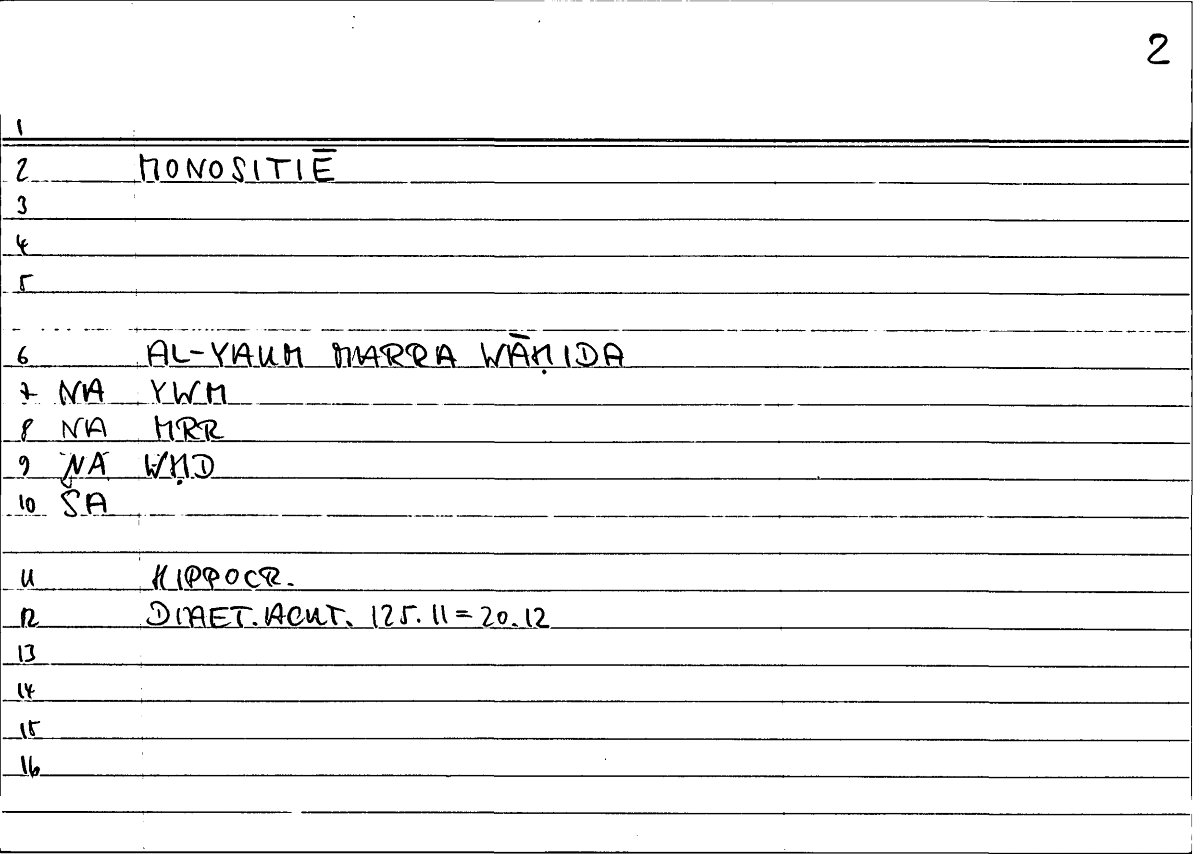 2
1
2 MONOSITIĒ
3
4
5
6 AL-YAUM MARRA WĀḤIDA
7 NA YWM
8 NA MRR
9 NA WḤD
10 ŠA
11 HIPPOCR.
12 DIAET. ACUT. 125.11 = 20.12
13
14
15
16